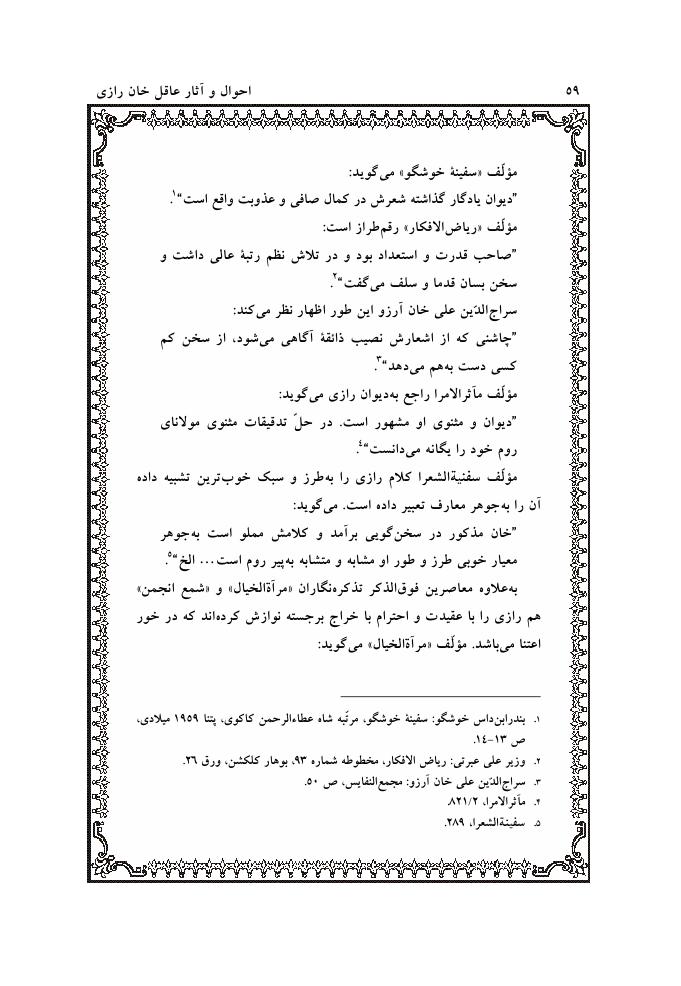 ۵۹ احوال و آثار عاقل خان رازی
مؤلّف «سفینهٔ خوشگو» می‌گوید:
”دیوان یادگار گذاشته شعرش در کمال صافی و عذوبت واقع است“۱.
مؤلّف «ریاض‌الافکار» رقم‌طراز است:
”صاحب قدرت و استعداد بود و در تلاش نظم رتبهٔ عالی داشت و
سخن بسان قدما و سلف می‌گفت“۲.
سراج‌الدّین علی خان آرزو این طور اظهار نظر می‌کند:
”چاشنی که از اشعارش نصیب ذائقهٔ آگاهی می‌شود، از سخن کم
کسی دست به‌هم می‌دهد“۳.
مؤلّف مآثرالامرا راجع به‌دیوان رازی می‌گوید:
”دیوان و مثنوی او مشهور است. در حلّ تدقیقات مثنوی مولانای
روم خود را یگانه می‌دانست“۴.
مؤلّف سفنیةالشعرا کلام رازی را به‌طرز و سبک خوب‌ترین تشبیه داده
آن را به‌جوهر معارف تعبیر داده است. می‌گوید:
”خان مذکور در سخن‌گویی برآمد و کلامش مملو است به‌جوهر
معیار خوبی طرز و طور او مشابه و متشابه به‌پیر روم است... الخ“۵.
به‌علاوه معاصرین فوق‌الذکر تذکره‌نگاران «مرآةالخیال» و «شمع انجمن»
هم رازی را با عقیدت و احترام با خراج برجسته نوازش کرده‌اند که در خور
اعتنا می‌باشد. مؤلّف «مرآةالخیال» می‌گوید:
۱. بندرابن‌داس خوشگو: سفینهٔ خوشگو، مرتّبه شاه عطاءالرحمن کاکوی، پتنا ۱۹۵۹ میلادی،
ص ۱۳-۱۴.
۲. وزیر علی عبرتی: ریاض الافکار، مخطوطه شماره ۹۳، بوهار کلکشن، ورق ۲۶.
۳. سراج‌الدّین علی خان آرزو: مجمع‌النفایس، ص ۵۰.
۴. مآثرالامرا، ۸۲۱/۲.
۵. سفینةالشعرا، ۲۸۹.